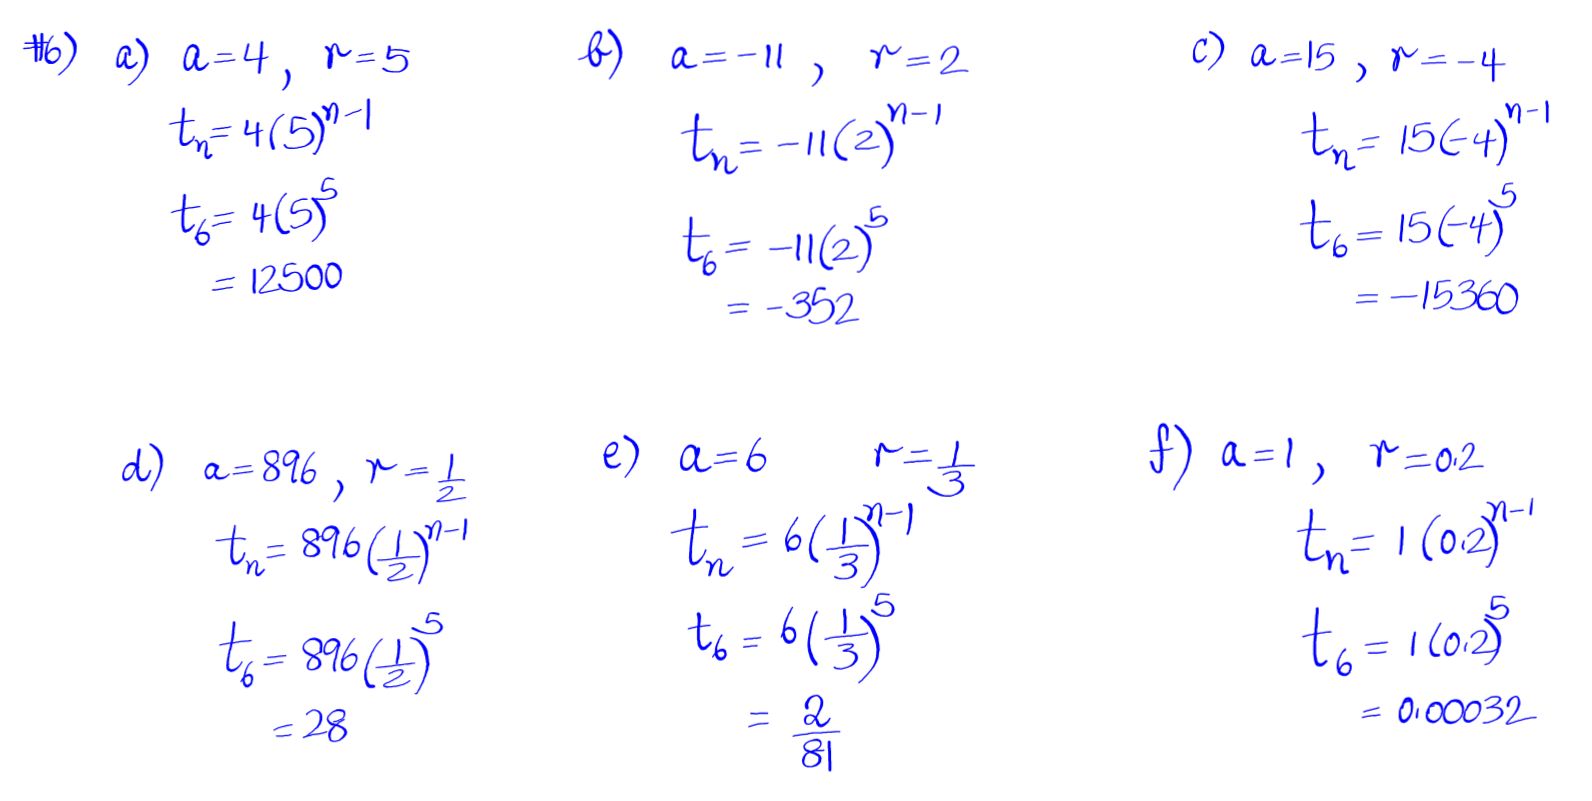 #6) a) a=4, r=5
tₙ=4(5)ⁿ⁻¹
t₆=4(5)⁵
=12500
b) a=-11, r=2
tₙ=-11(2)ⁿ⁻¹
t₆=-11(2)⁵
=-352
c) a=15, r=-4
tₙ=15(-4)ⁿ⁻¹
t₆=15(-4)⁵
=-15360
d) a=896, r=1/2
tₙ=896(1/2)ⁿ⁻¹
t₆=896(1/2)⁵
=28
e) a=6 r=1/3
tₙ=6(1/3)ⁿ⁻¹
t₆=6(1/3)⁵
=2/81
f) a=1, r=0.2
tₙ=1(0.2)ⁿ⁻¹
t₆=1(0.2)⁵
=0.00032